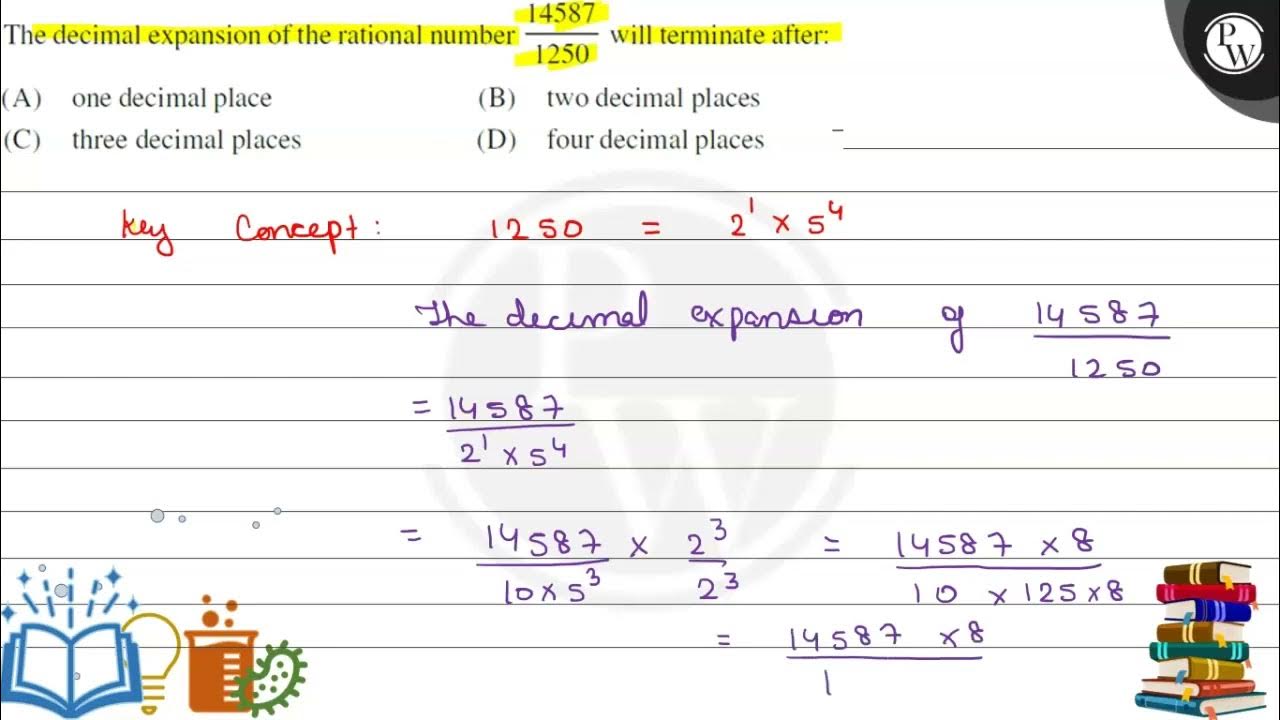 The decimal expansion of the rational number 14587/1250 will terminate after:
(A) one decimal place (B) two decimal places
(C) three decimal places (D) four decimal places
Key Concept: 1250 = 2¹ × 5⁴
The decimal expansion of 14587/1250
= 14587/2¹ × 5⁴
= 14587/10 × 5³ × 2³/2³ = 14587 × 8/10 × 125 × 8
= 14587 × 8/1
PW
PW